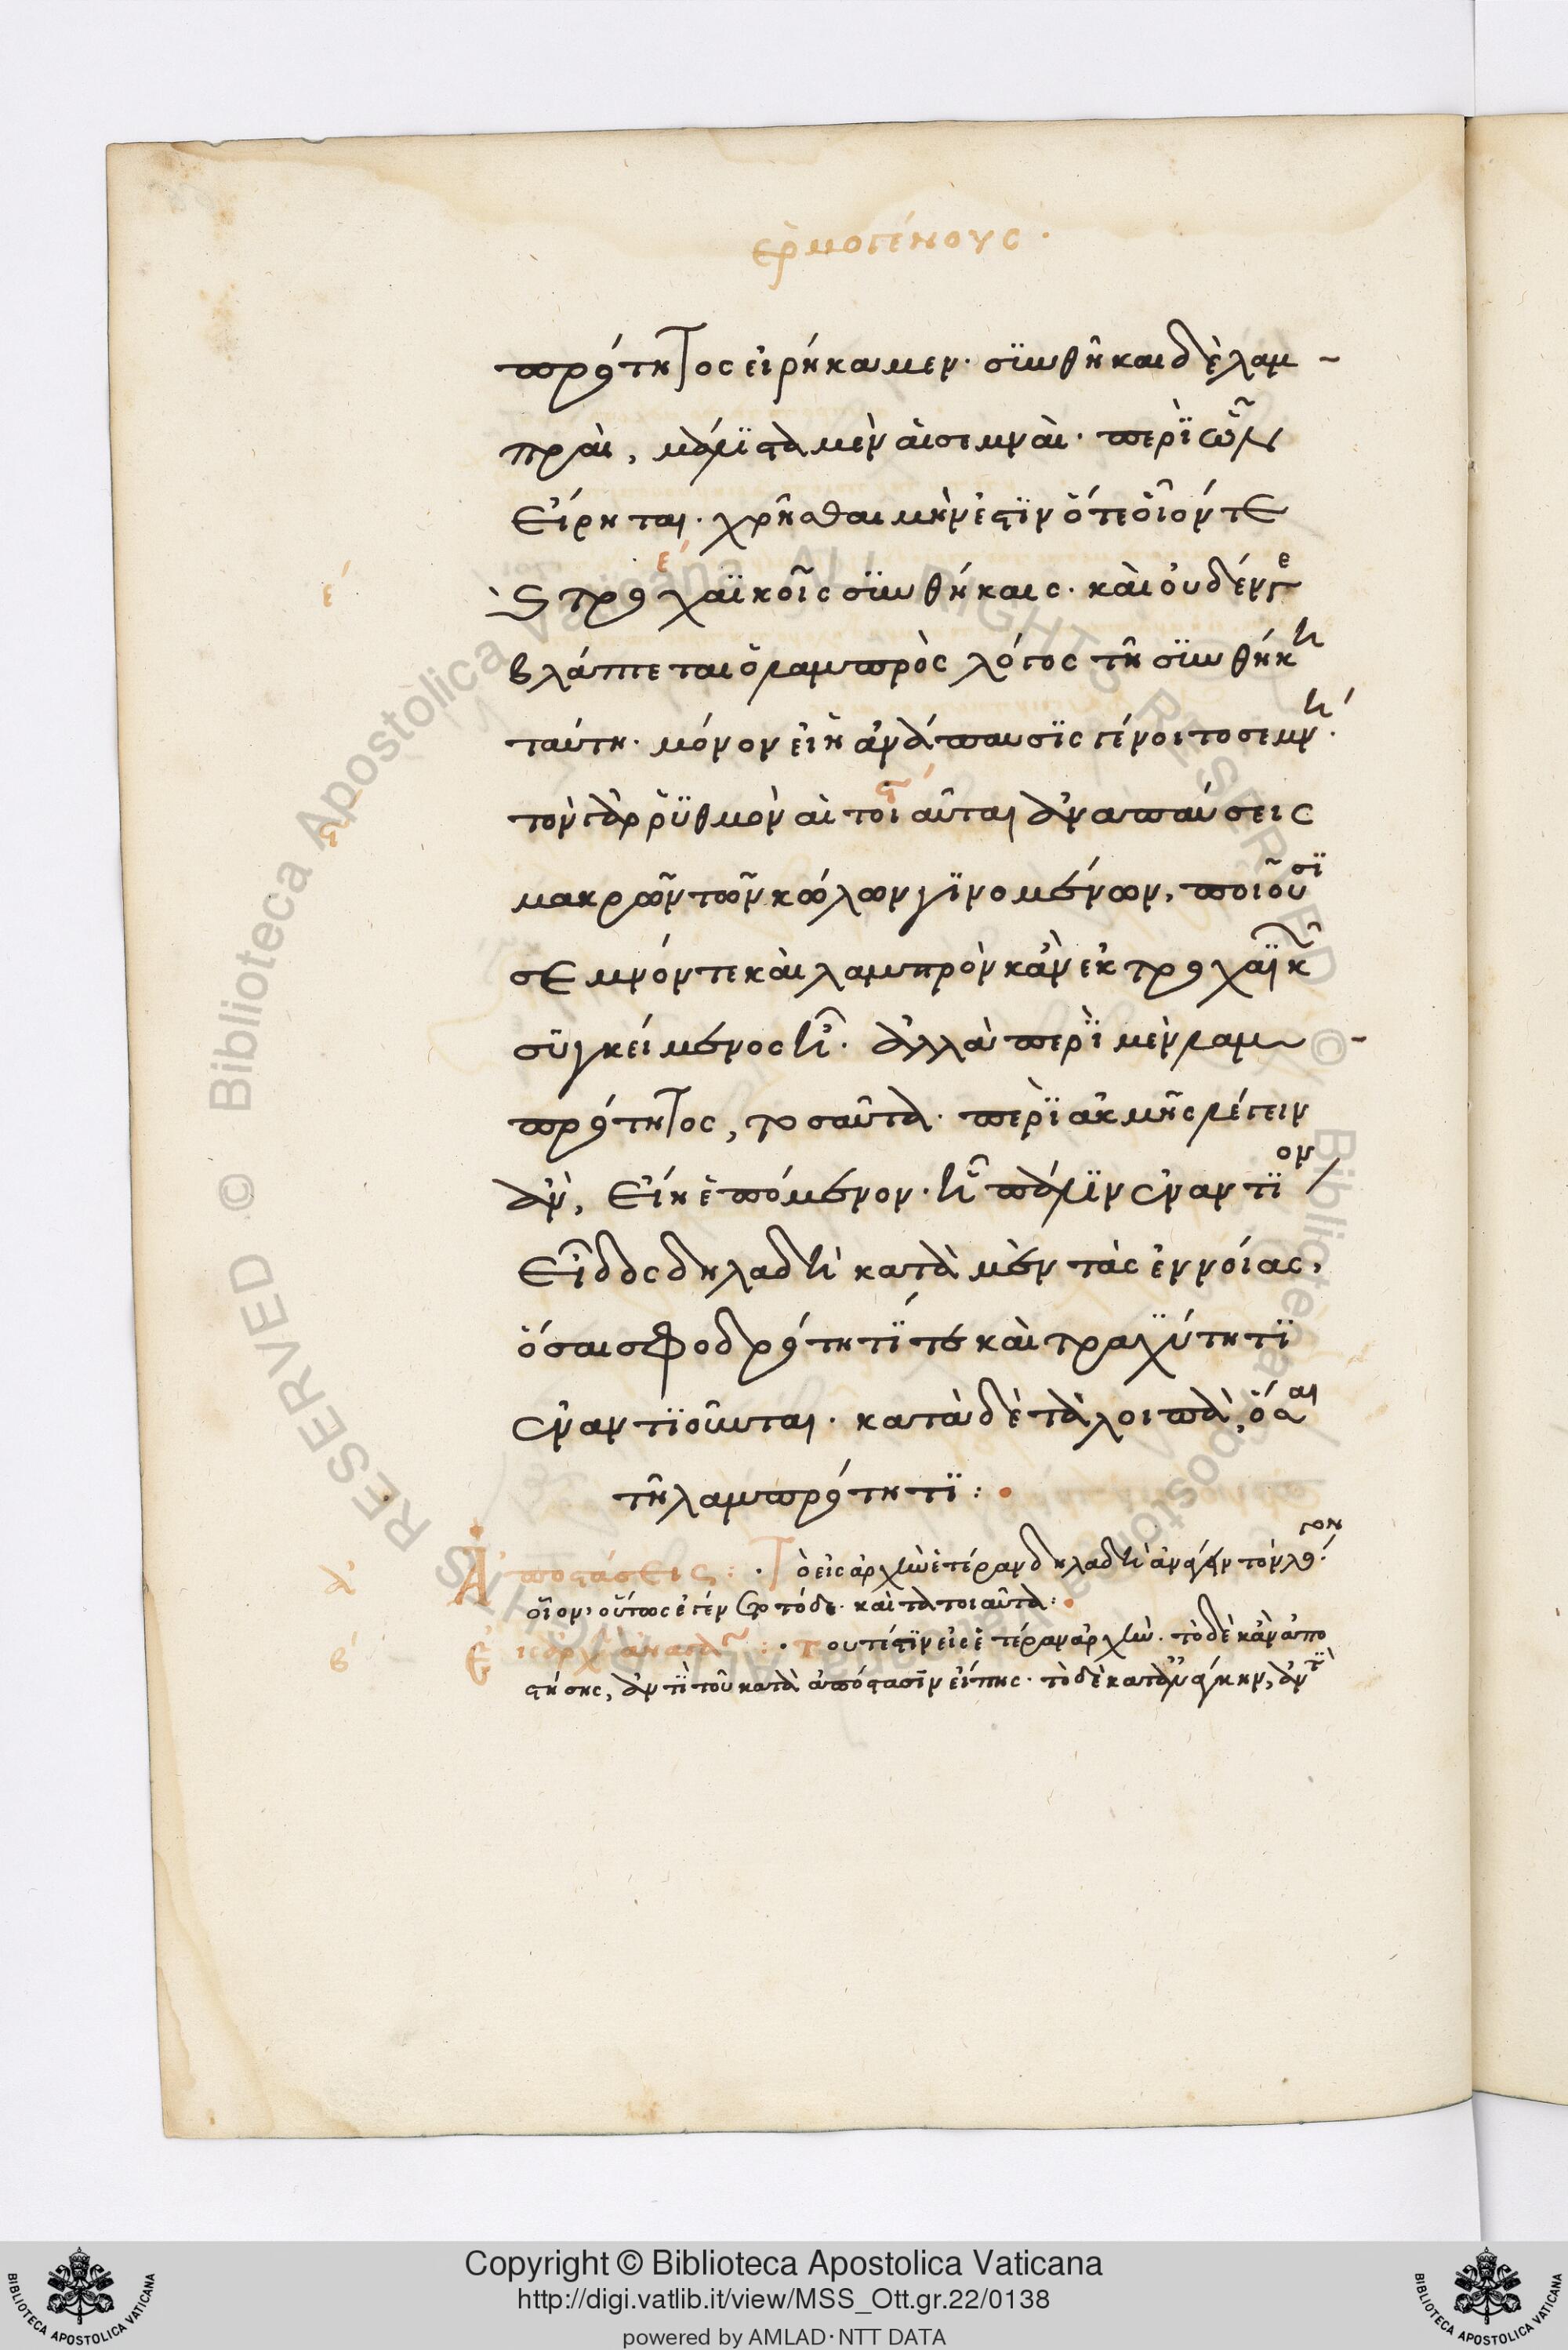 ἑρμογένους·
πρότητος εἰρήκαμεν· συνθῆκαι δὲ λαμ-
πραὶ, μάλιστα μὲν αἱ σεμναὶ· περὶ ὧν
εἴρηται· χρῆσθαι μὴν ἔστιν ὅτε οἷόν τε
ε΄ ς τροχαϊκοῖς συνθήκαις· καὶ οὐδέν γε
βλάπτεται ὁ λαμπρὸς λόγος τῆ συνθήκη
ταύτη· μόνον εἰ ἡ ἀνάπαυσις γένοιτο σεμνή·
ς΄ τὸν γὰρ ῥυθμὸν αἱ τοιαῦται ἀναπαύσεις
μακρῶν τῶν κώλων γινομένων, ποιοῦσι
σεμνόν τε καὶ λαμπρὸν κἂν ἐκ τροχαϊκῶν
συγκείμενος ἦ· ἀλλὰ περὶ μὲν λαμ-
πρότητος, τοσαῦτα· περὶ ἀκμῆς λέγειν
ἂν, εἴη ἑπόμενον· ἦ πάλιν ἐναντίον
εἶδος δηλαδὴ κατὰ μὲν τὰς ἐννοίας,
ὅσαι σφοδρότητί τε καὶ τραχύτητι
ἐναντιοῦνται· κατὰ δὲ τὰ λοιπὰ, ὅσαι
τῆ λαμπρότητι:
α΄ Ἀποστάσεις: · τὸ εἰς ἀρχὴν ἑτέραν δηλαδὴ ἀνάγειν τὸν λόγον·
οἷον, οὕτως ἐγένετο τόδε· καὶ τὰ τοιαῦτα:
β΄ Ἐξ ἀρχῆς : · τουτέστιν εἰς ἑτέραν ἀρχὴν· τὸ δὲ κἂν ἀπο
στήσης, ἀντὶ τοῦ κατὰ ἀπόστασιν εἴπης· τὸ δὲ ἀντὶ
Copyright © Biblioteca Apostolica Vaticana
http://digi.vatlib.it/view/MSS_Ott.gr.22/0138
powered by AMLAD·NTT DATA
BIBLIOTECA APOSTOLICA VATICANA
BIBLIOTECA APOSTOLICA VATICANA
© Biblioteca Apostolica Vaticana ALL RIGHTS RESERVED © Biblioteca Apostolica Vaticana ALL RIGHTS RESERVED